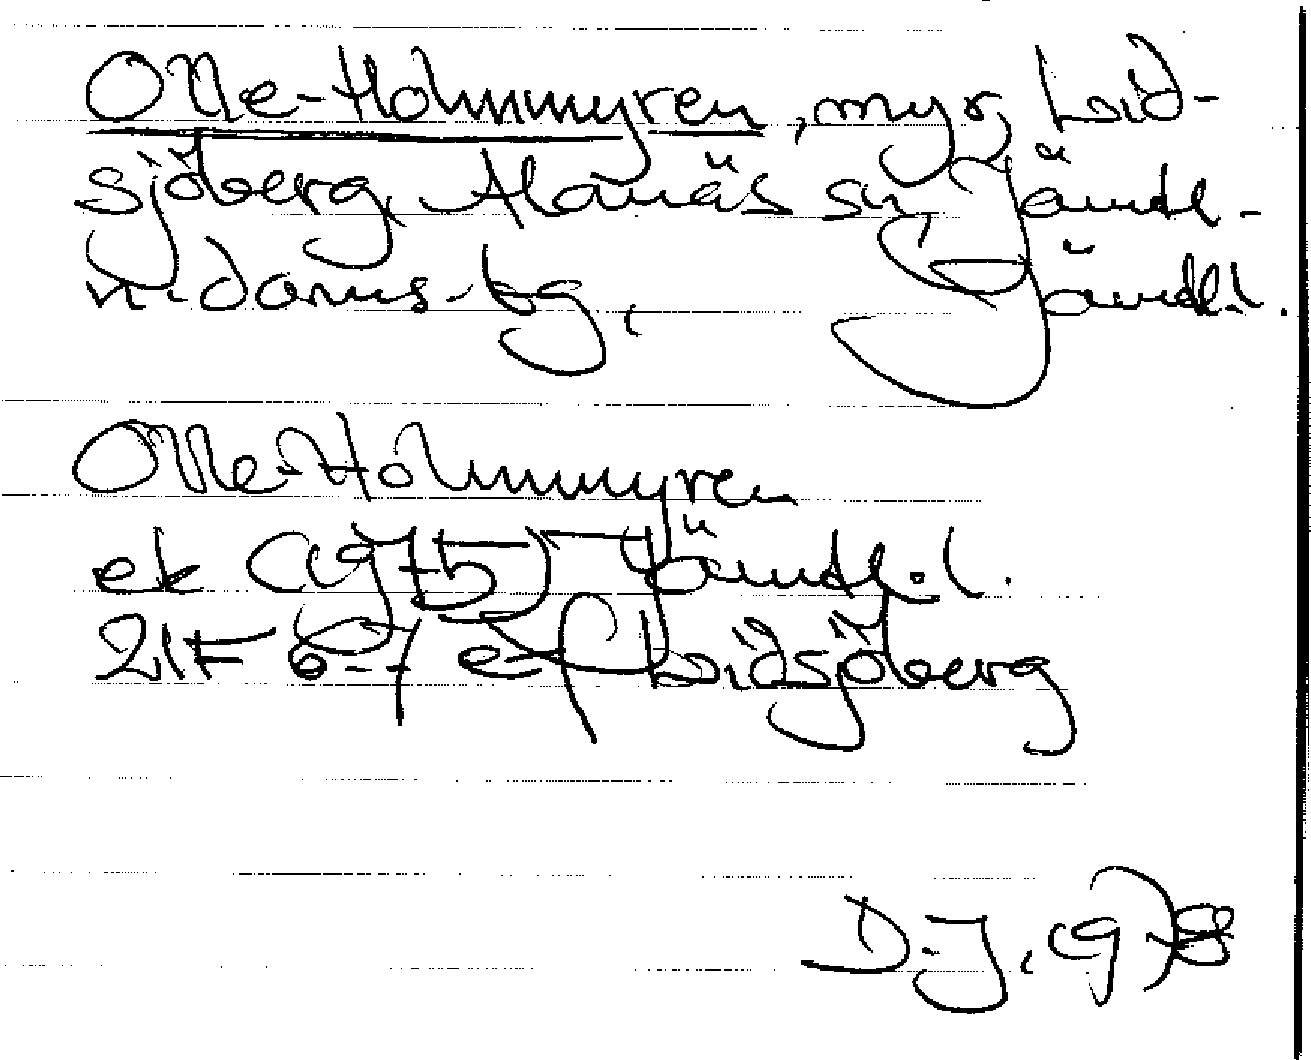 Olle-Holmmyren, myr, Lid-
sjöberg, Alanäs sn, Jämtl.
n. doms. bg, Jämtl. l.
Olle-Holmmyren
ek (1975) Jämtl. l.
21F 6-7 e-f Lidsjöberg
D.J. 1978